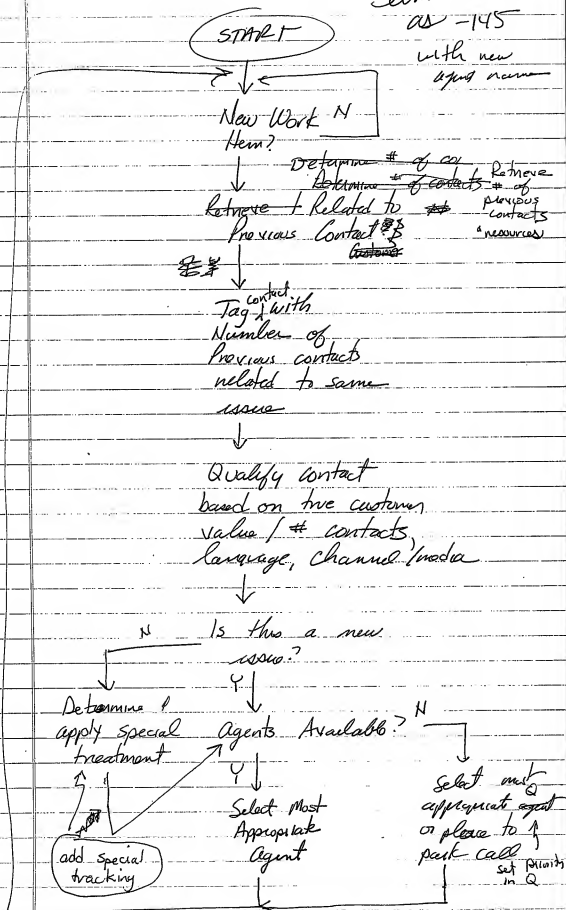 as -145
with new
agent name
START
New Work N
Item?
Determine # of co
Determine # of contacts
Retrieve
# of
previous
contacts
& resources
Retrieve + Related to
Previous Contact
Customer
Tag contact with
Number of
Previous contacts
related to same
issue
Qualify contact
based on true customer
value / # contacts,
language, channel/media
N
Is this a new
issue?
Y
Determine &
apply special
treatment
Agents Available?
N
Y
Select Most
Appropriate
Agent
Select most
appropriate agent
Q
or place to
park call
set priority
in Q
add special
tracking